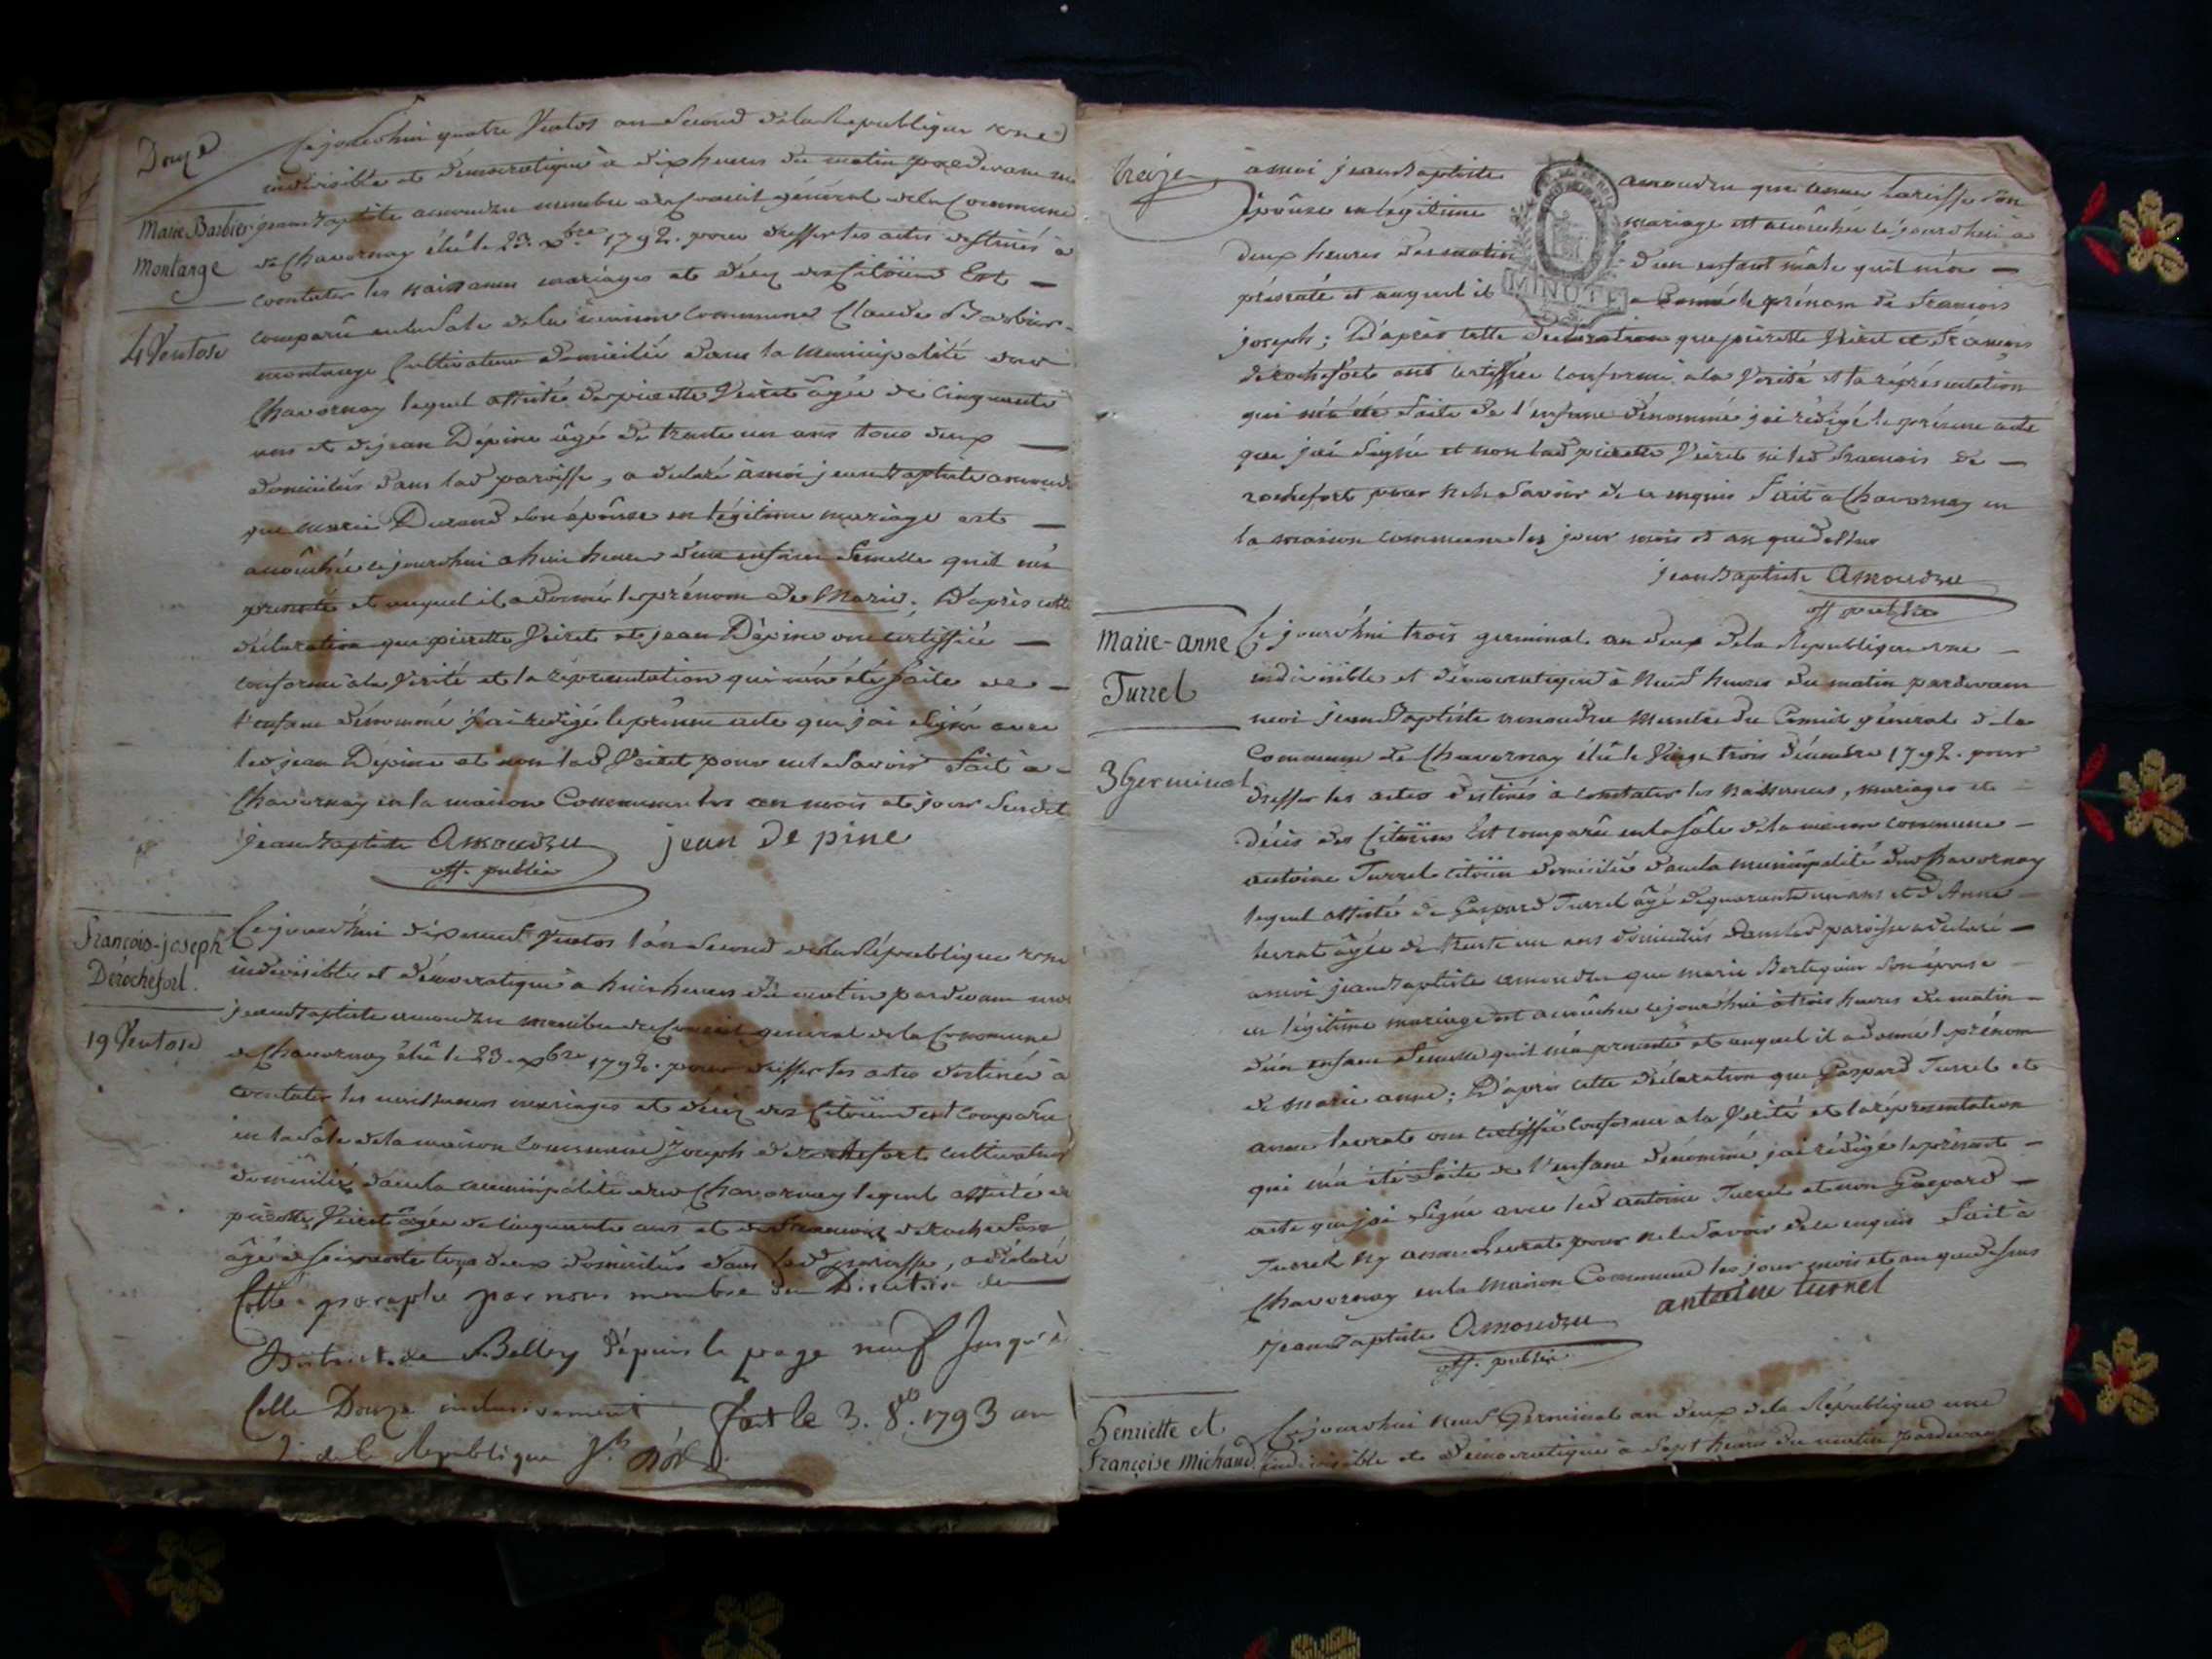 Douze
Ce jourdhui quatre Ventos an Second de la Republique une
indivisible et democratique à dix heures du matin pardevant moi
Marie Barbier
Montange
jean Baptiste amoudru membre du Conseil général de la Commune
de Chavornay élû le 23. xbre 1792. pour dresser les actes destinés à
constater les naissances mariages et décez des Citoïens Est
4 Ventose
comparû en la Sale de la maison Commune Claude Barbier
montange Cultivateur domicilié dans la Municipalité dud
Chavornay lequel assisté de pierette Veiret âgée de Cinquante
ans et de jean Dépine âgé de trente un ans tous deux
domiciliés dans lad paroisse, a déclaré à moi jean Baptiste amoudru
que marie Durand son épouse en légitime mariage est
accouchée ce jourdhui a huit heures d'une enfant femelle quil m'a
présenté et auquel il a donné le prénom de Marie; D'après cette
déclaration que pierette Veiret et jean Dépine ont certiffiée
conforme à la Vérité et la représentation qui m'a été faite de
l'enfant dénommé j'ai redigé le présent acte que j'ai signé avec
led jean Dépine et non lad Veiret pour ne le Savoir fait à
Chavornay en la maison Commune les an mois et jour Susdit
jean Baptiste Amoudru jean De pine
off. public
François-joseph
Dérochefort.
19 Ventose
Ce jourdhui dixneuf Ventos l'an Second de la République une
indivisible et démocratique a huit heures du matin pardevant moi
jean Baptiste amoudru membre du Conseil général de la Commune
de Chavornay élû le 23. xbre 1792. pour dresser les actes destinés à
constater les naissances mariages et décez des Citoïens est comparu
en la Sâle de la maison Commune Joseph derochefort cultivateur
domicilié dans la municipalité dud Chavornay lequel assisté de
pierette Veiret âgée de cinquante ans et de francois de rochefort
âgé de soixante tous deux domiciliés dans lad paroisse, a déclaré
Cotté & paraphé par nous membre du Directoire du
District de Belley depuis la page neuf Jusqu'à
Celle Douze inclusivement fait le 3. 8bre 1793 an
2 de la Republique
treize
à moi jean Baptiste amoudru que anne Larisse son
épouse en légitime mariage est accouchée ce jourdhui à
deux heures du matin d'un enfant mâle quil m'a
présenté et auquel il a donné le prénom de francois
MINUTE
joseph; D'après cette déclaration que pierette Veiret et francois
derochefort ont certiffiée conforme à la Vérité et la représentation
qui m'a été faite de l'enfant dénommé j'ai rédigé le présent acte
que j'ai signé et non lad pierette Veiret ni led francois de
rochefort pour ne le Savoir de ce enquis fait a Chavornay en
la maison commune les jour mois et an que dessus
jean Baptiste Amoudru
off public
Marie-anne
Turrel
3 Germinal
Ce jourdhui trois germinal an deux de la Republique une
indivisible et démocratique à Neuf heures du matin pardevant
moi jean Baptiste amoudru Membre du Conseil général de la
Commune de Chavornay élû le Vingt trois décembre 1792. pour
dresser les actes destinés à constater les naissances, mariages et
décès des Citoïens Est comparû en la Sâle de la maison commune
antoine Turrel citoïen domicilié dans la municipalité dud Chavornay
lequel assisté de Gaspard Turrel âgé de quarante un ans et d'Anne
âgée de trente un ans domiciliés dans lad paroisse a déclaré
a moi jean Baptiste amoudru que marie son épouse
en légitime mariage est accouchée ce jourdhui à trois heures du matin
d'un enfant femelle quil m'a présenté et auquel il a donné le prénom
de marie anne; D'après cette déclaration que Gaspard Turrel et
anne ont certiffié conforme a la Vérité et la représentation
qui m'a été faite de l'enfant dénommé j'ai rédigé le présent
acte que j'ai signé avec led antoine Turrel et non Gaspard
Turrel ny anne pour ne le Savoir de ce enquis fait à
Chavornay en la maison Commune les jour mois et an que dessus
jean Baptiste Amoudru antoine turrel
off. public
henriette et
Françoise Michaud.
Ce jourdhui neuf Germinal an deux de la République une
indivisible et Démocratique à Sept heures du matin pardevant